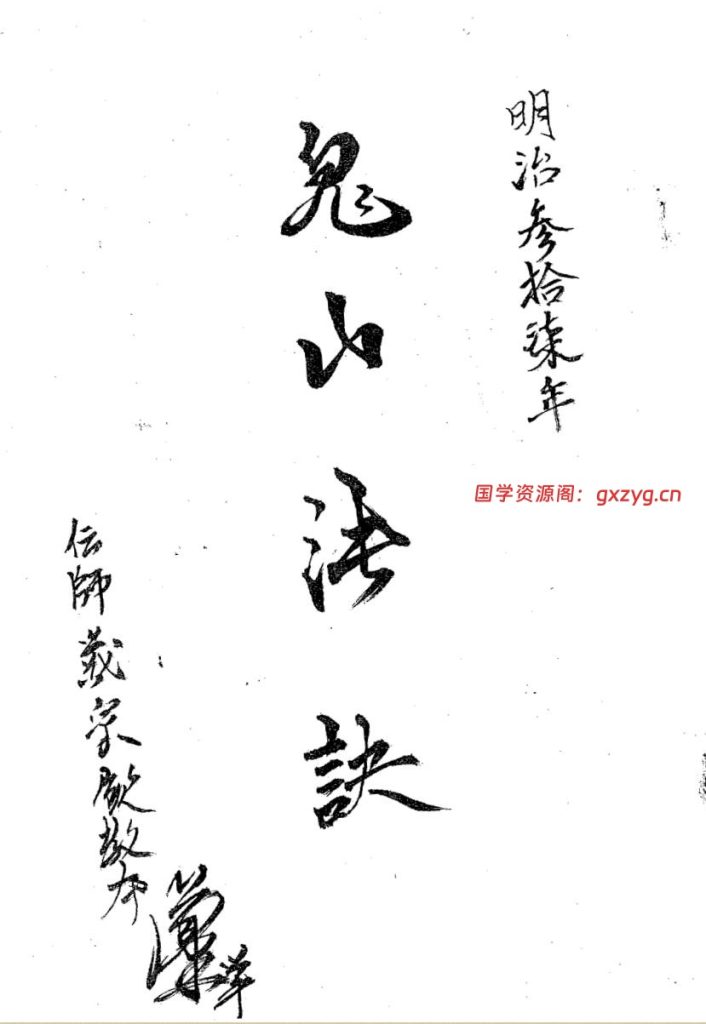 明治参拾柒年
鬼山法訣
国学资源阁：gxzyg.cn
伝師戴宗